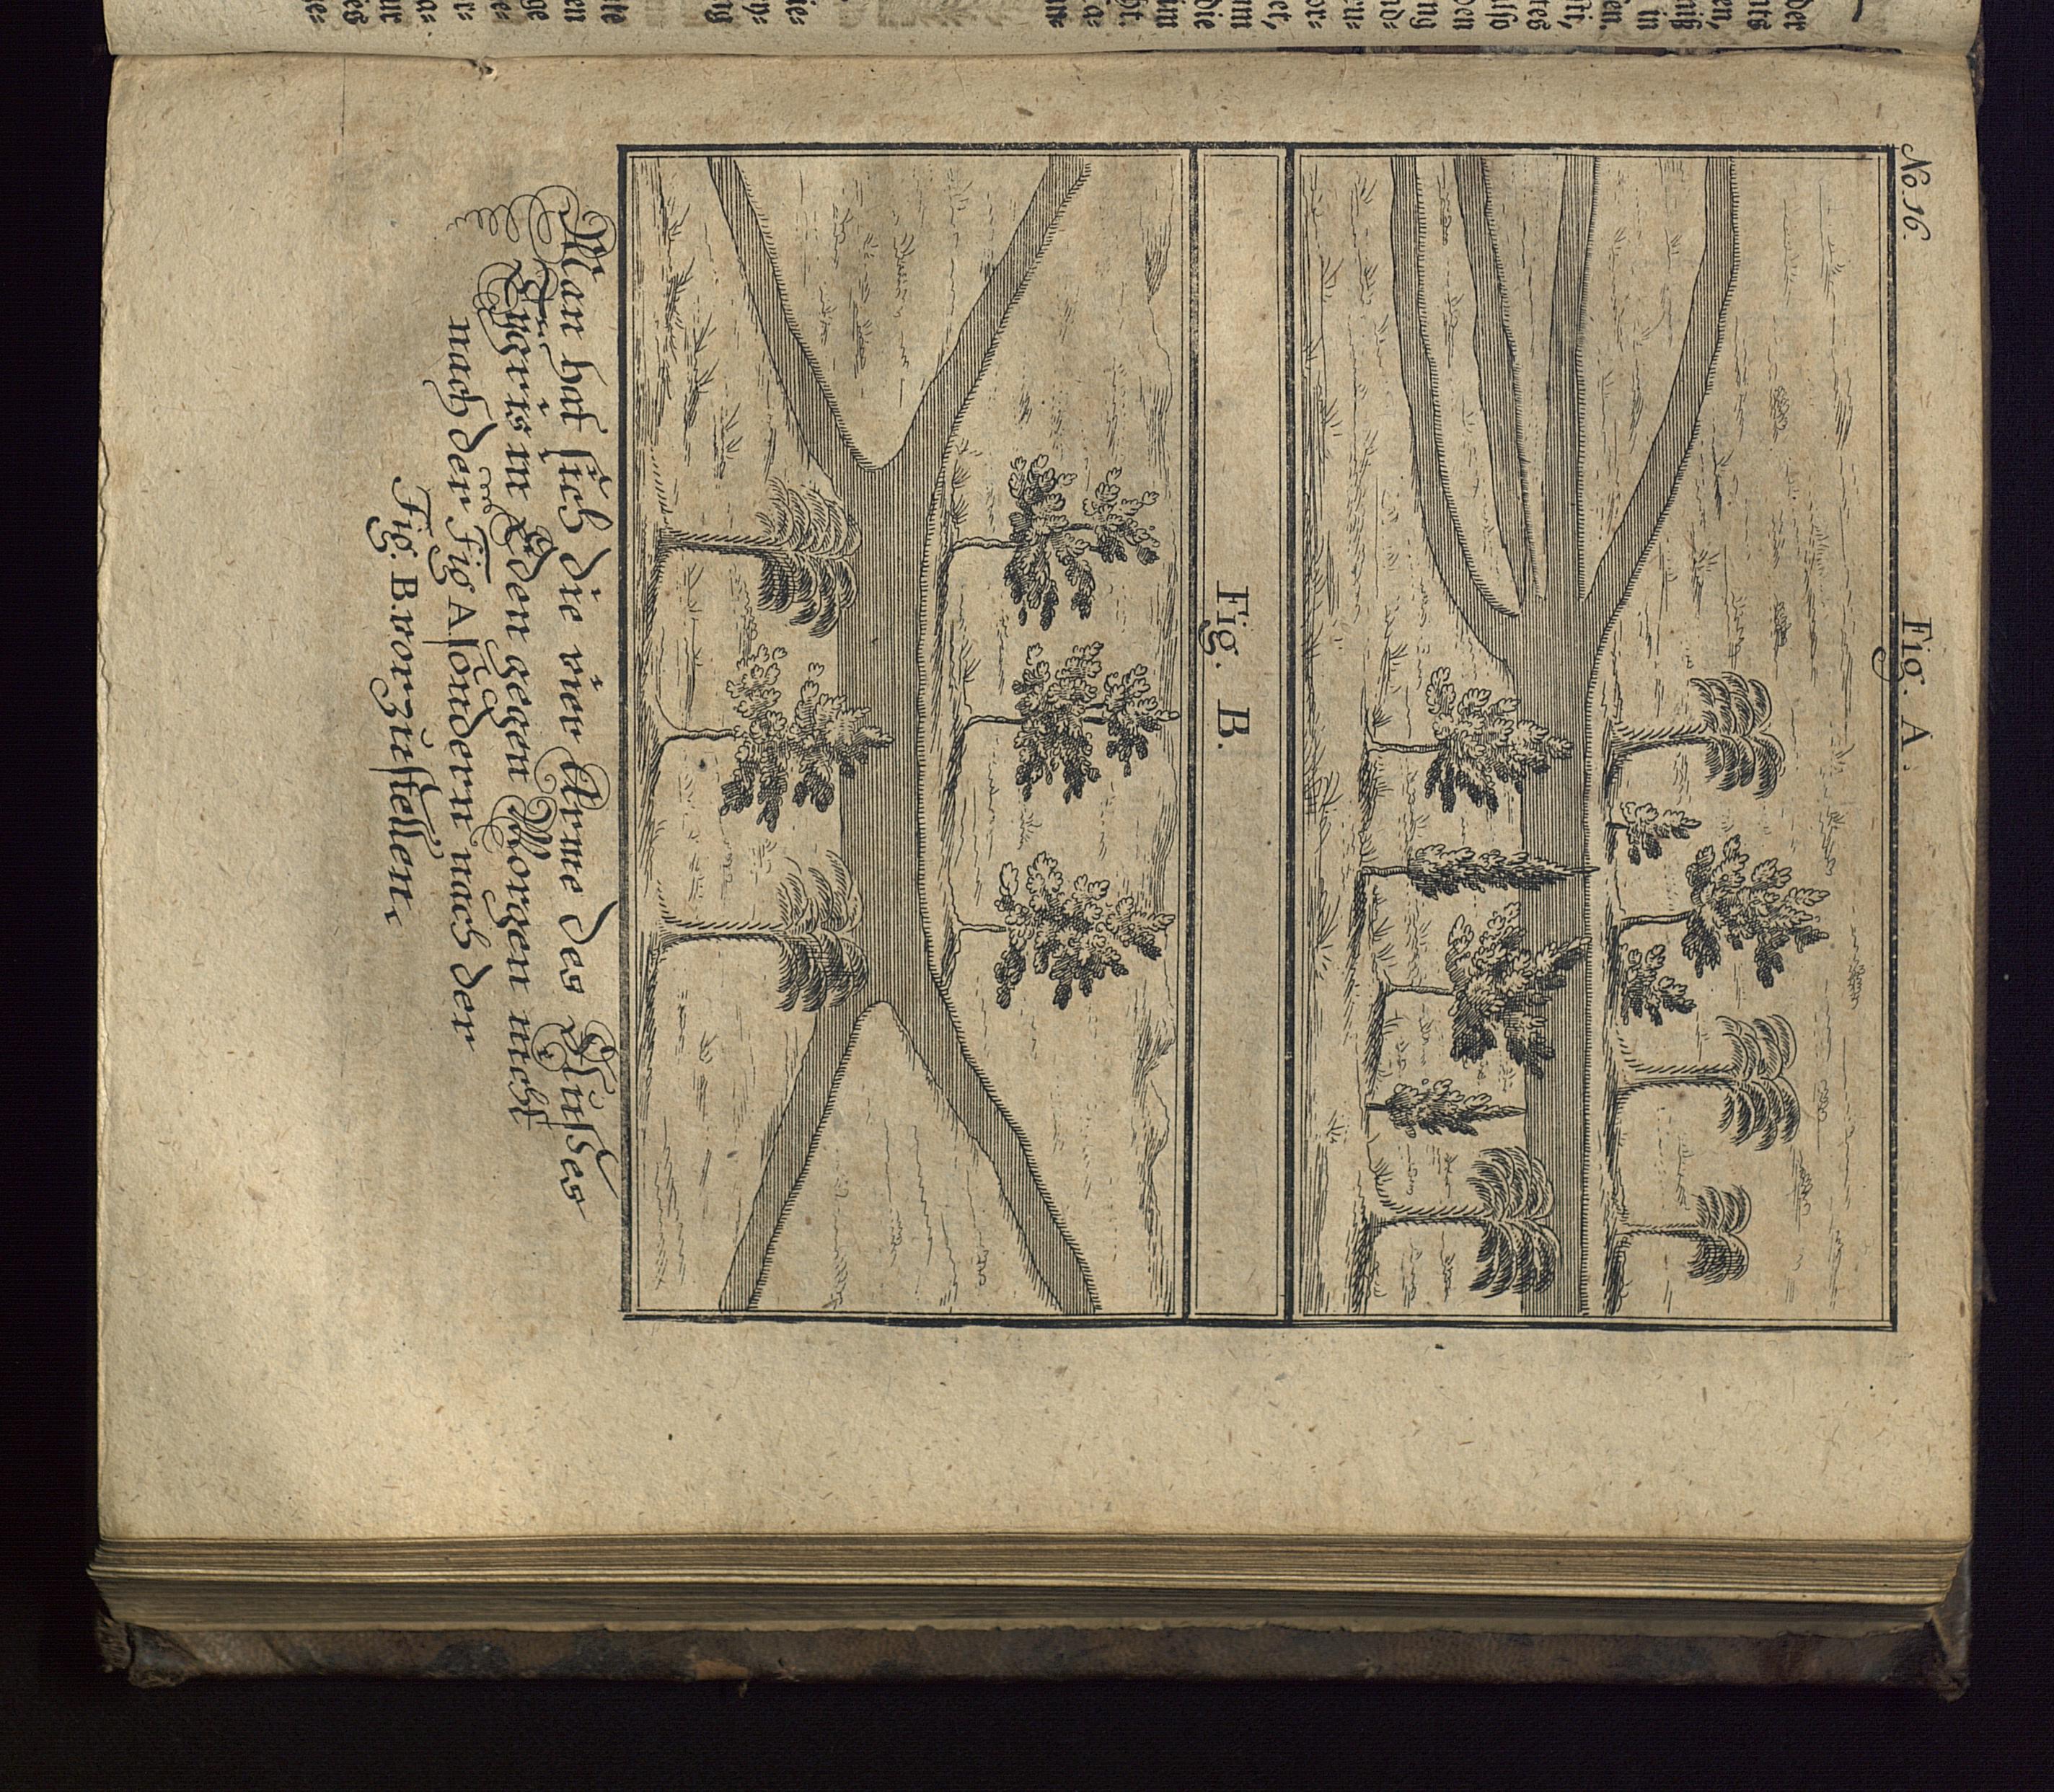 No. 16.
Fig. A.
Fig. B.
Man hat sich die vier Arme des Flußes
im Eden gegen Morgen nicht
nach der Fig A. sondern nach der
Fig. B. vorzustellen.